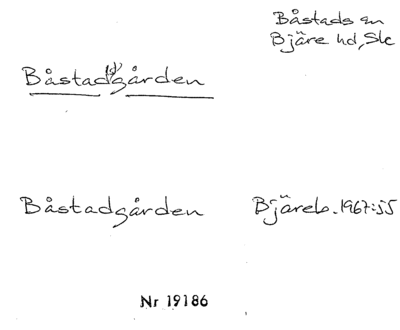 Båstads sn
Bjäre hd, Sk
Båstad(s)gården
Båstadgården
Bjäreb. 1967:55
Nr 19186